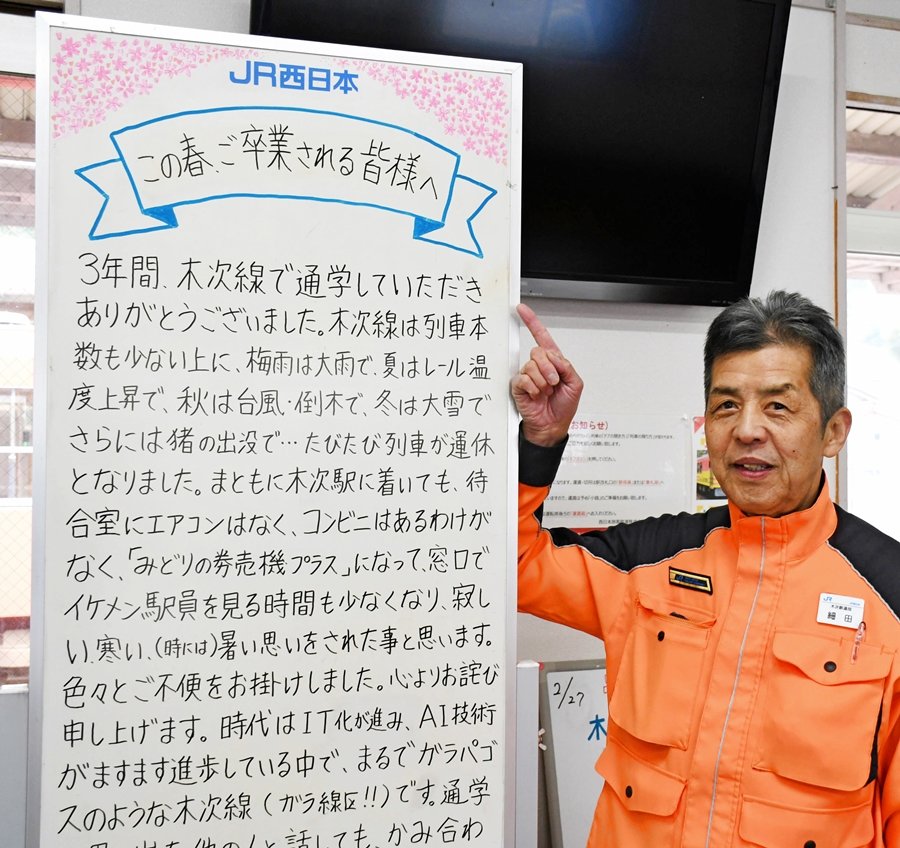 JR西日本
この春、ご卒業される皆様へ
3年間、木次線で通学していただき
ありがとうございました。木次線は列車本
数も少ない上に、梅雨は大雨で、夏はレール温
度上昇で、秋は台風・倒木で、冬は大雪で
さらには猪の出没で…たびたび列車が運休
となりました。まともに木次駅に着いても、待
合室にエアコンはなく、コンビニはあるわけが
なく、「みどりの券売機プラス」になって、窓口で
イケメン駅員を見る時間も少なくなり、寂し
い、寒い、(時には)暑い思いをされた事と思います。
色々とご不便をお掛けしました。心よりお詫び
申し上げます。時代はIT化が進み、AI技術
がますます進歩している中で、まるでガラパゴ
スのような木次線(ガラ線区!!)です。通学
お知らせ)
JR
細田
2/27
木